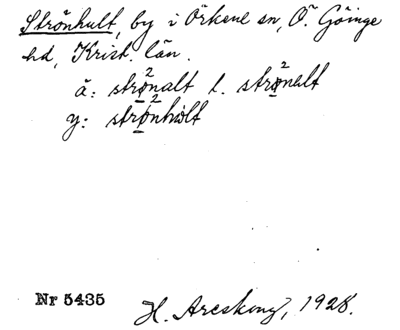 Strönhult, by i Örkene sn, Ö. Göinge
hd, Krist. län.
ä: strø̱²nalt l. strø̱²nelt
y: strø̱²nhòlt
Nr 5435
H. Areskoug, 1928.